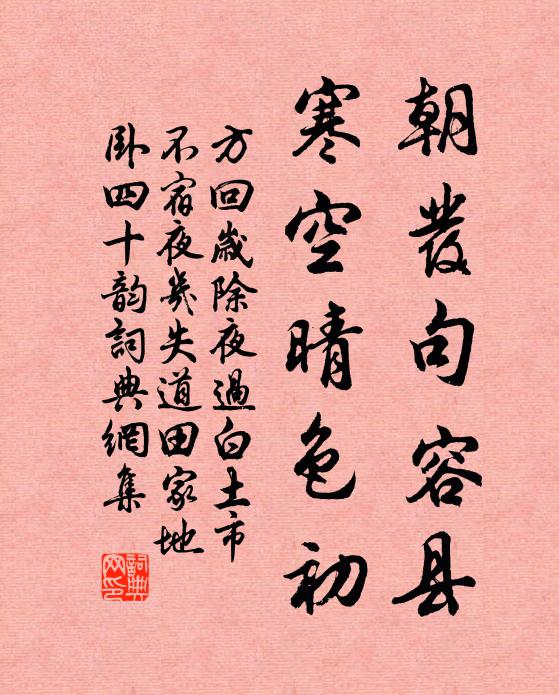 朝发句容县
寒空晴色初
方回歲除夜過白土市
不宿夜幾失道田家地
卧四十韵詞典網集
詞典網印